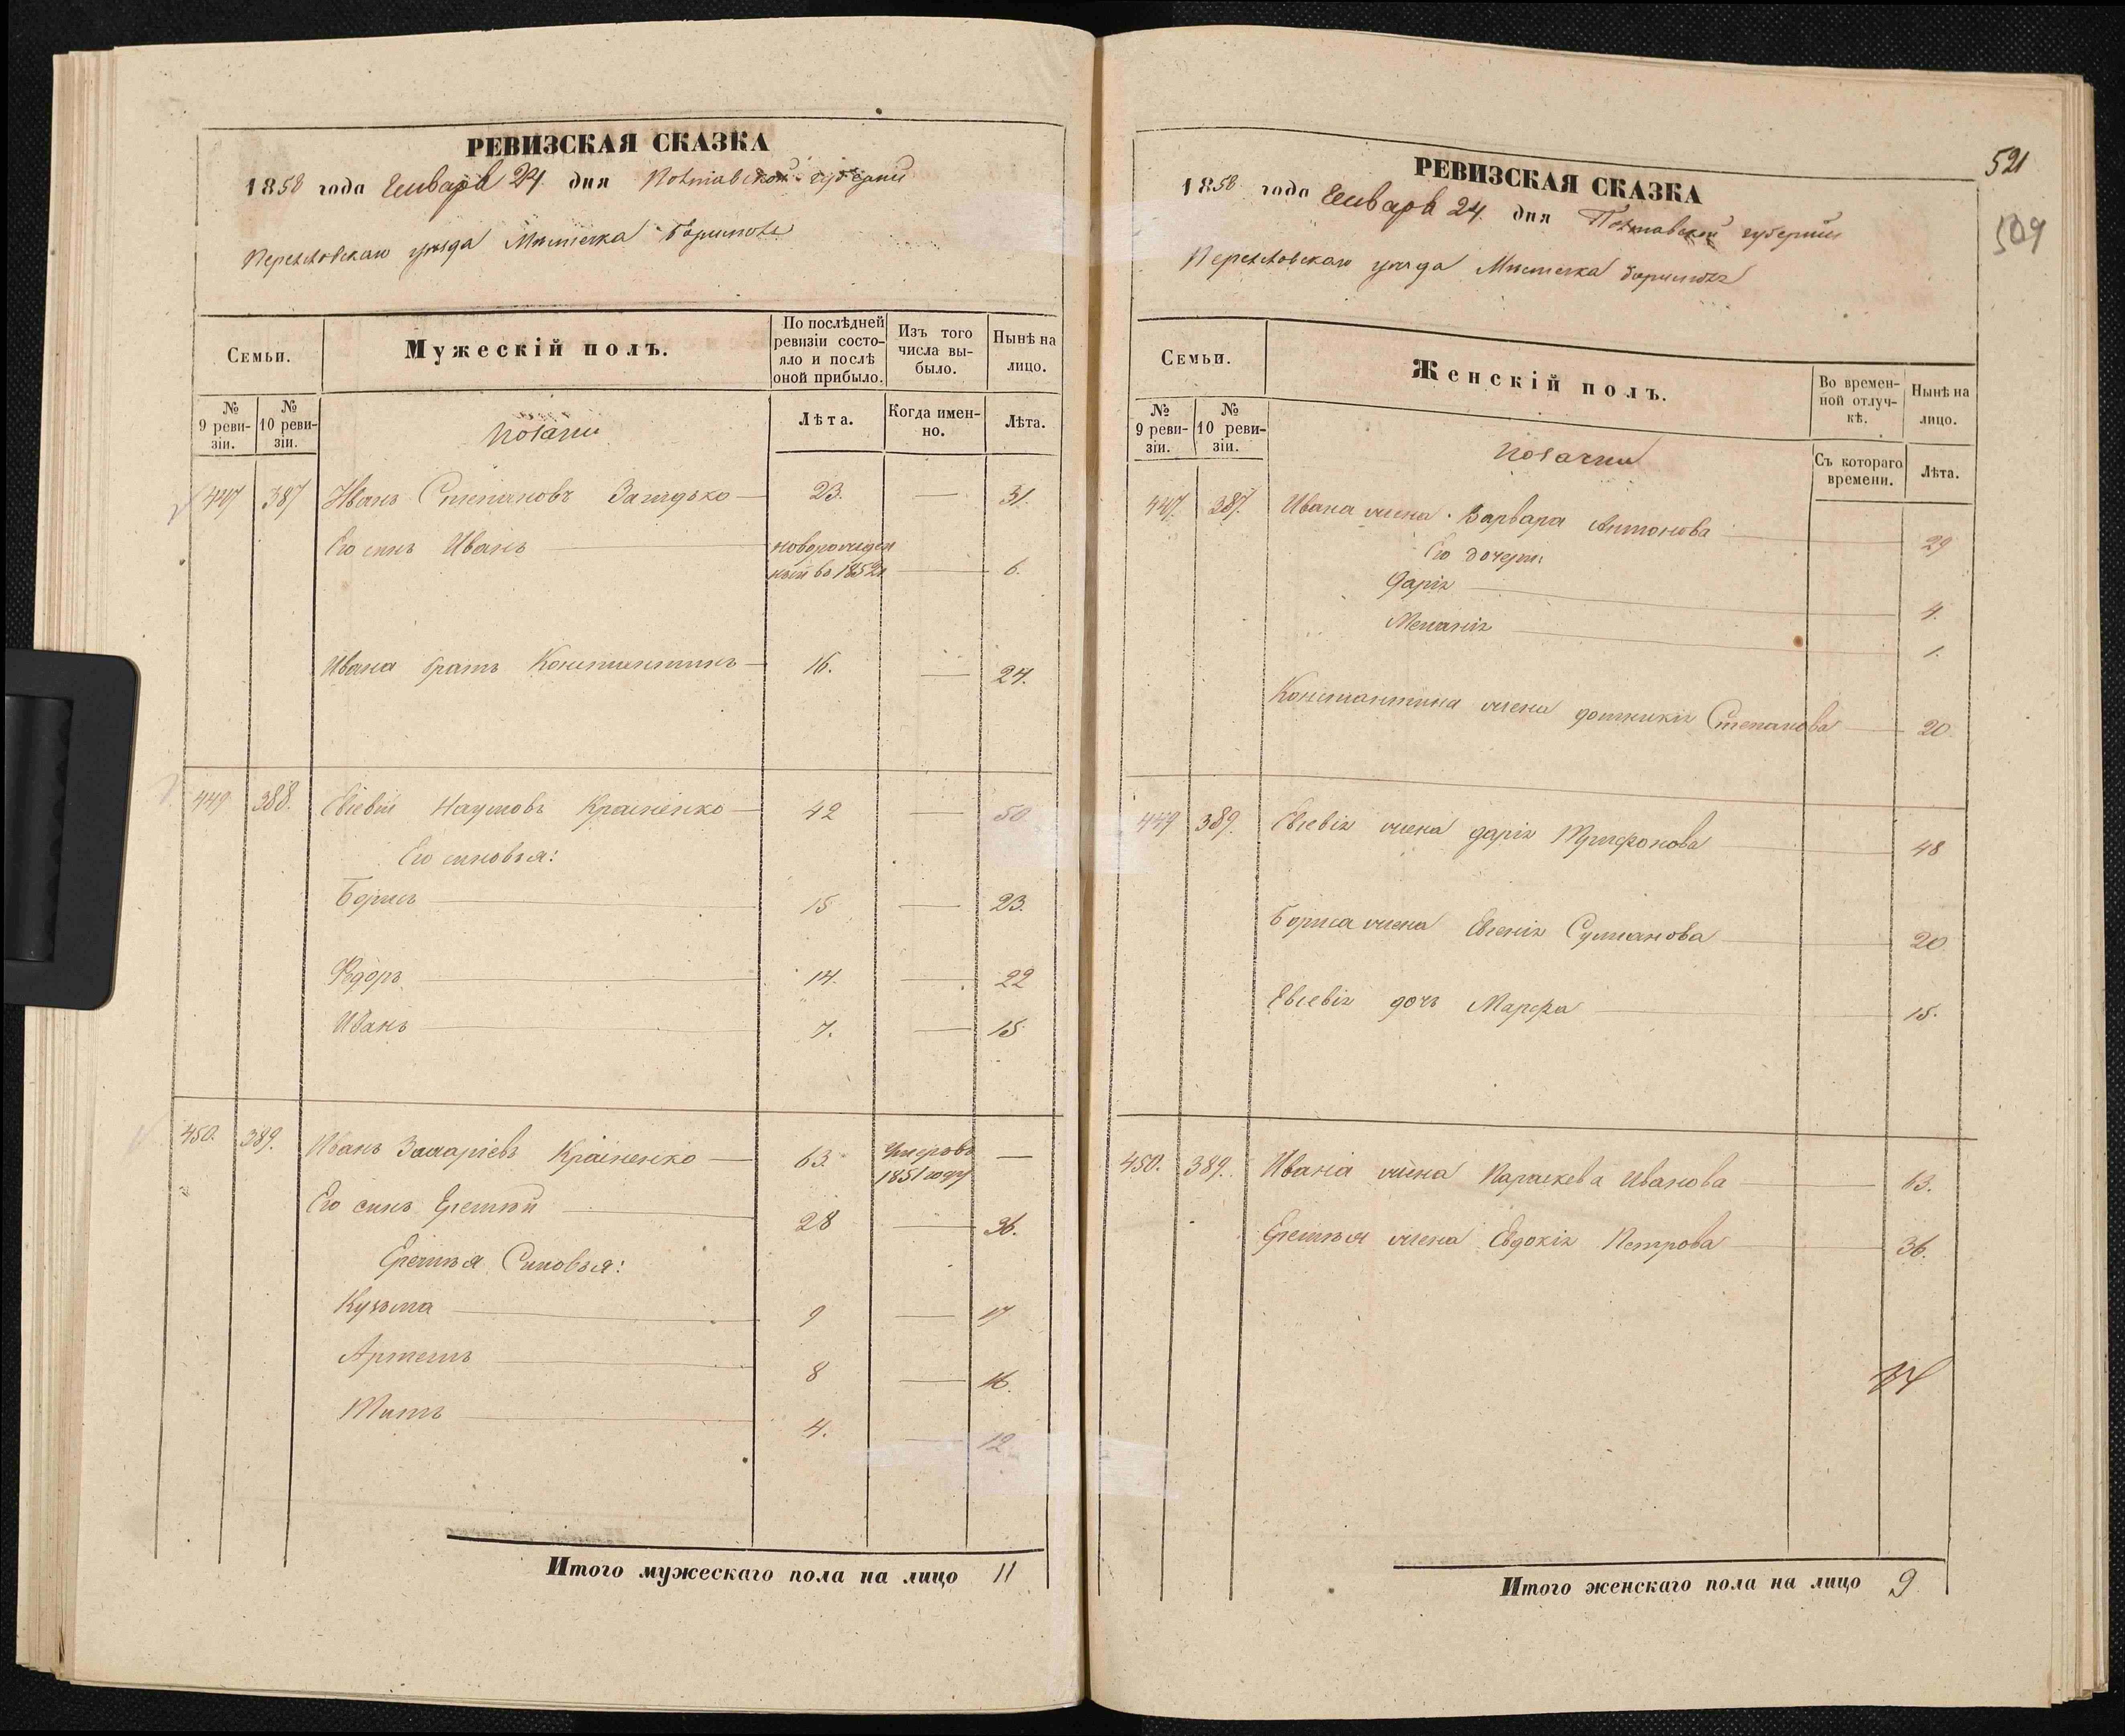 РЕВИЗСКАЯ СКАЗКА
1858 года Генваря 24 дня Полтавской губерніи
Переяловскаго уѣзда Мѣстечка Борисполя
Семьи.
Мужескій полъ.
По послѣдней ревизіи состояло и послѣ оной прибыло.
Изъ того числа выбыло.
Нынѣ на лицо.
№ 9 ревизіи.
№ 10 ревизіи.
Козачи
Лѣта.
Когда именно.
Лѣта.
447 387 Иванъ Степановъ 23. — 31.
Его сынъ Иванъ новорожденный въ 1852 — 6.
Ивана братъ Константинъ 16. — 24.
449 388. Евсевій Наумовъ Краіненко 42 — 50
Его сыновья:
Борисъ 15 — 23.
Ѳедоръ 14. — 22
Иванъ 7. — 15
450. 389. Иванъ Захаріевъ Краіненко 63. Умеръ въ 1851 году —
Его сынъ Еремѣй 28 — 36.
Еремѣя Сыновья:
Кузьма 9 — 17
Артемъ 8 — 16.
Титъ 4. — 12
Итого мужескаго пола на лицо 11
521
509
РЕВИЗСКАЯ СКАЗКА
1858 года Генваря 24 дня Полтавской губерніи
Переяловскаго уѣзда Мѣстечка Борисполя
Семьи.
Женскій полъ.
Во временной отлучкѣ.
Нынѣ на лицо.
№ 9 ревизіи.
№ 10 ревизіи.
Козачи
Съ котораго времени.
Лѣта.
447. 387. Ивана жена Варвара Антонова 29
Его дочери
Дарія 4.
Меланія 1.
Константина жена Степанова 20.
449 389. Евсевія жена Дарія Трифонова 48
Бориса жена Евгенія 20
Евсевія дочь Марфа 15.
450. 389. Ивана жена Параскева Иванова 63.
Еремѣя жена Евдокія Петрова 36.
Итого женскаго пола на лицо 9